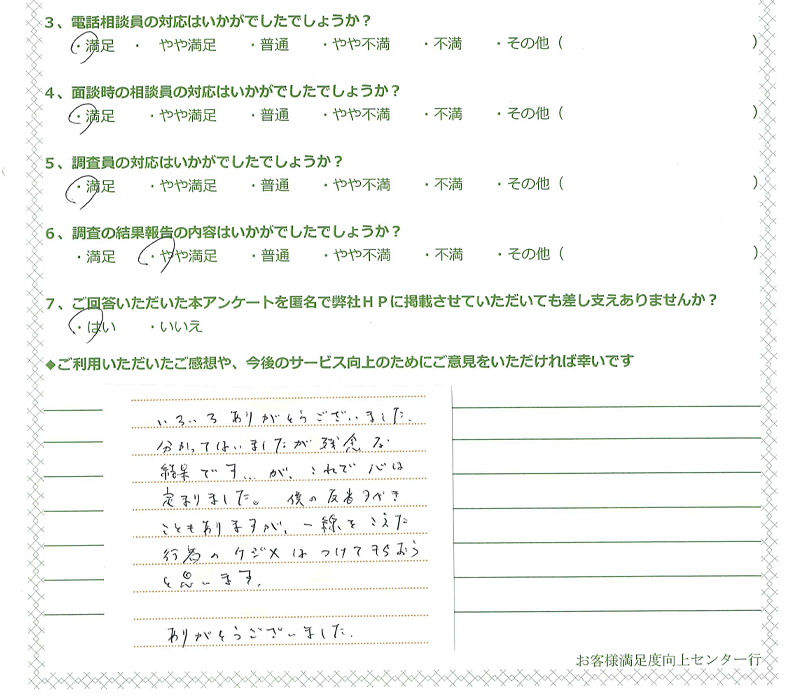 3、電話相談員の対応はいかがでしたでしょうか？
・満足 ・ やや満足 ・普通 ・やや不満 ・不満 ・その他（ ）
4、面談時の相談員の対応はいかがでしたでしょうか？
・満足 ・やや満足 ・普通 ・やや不満 ・不満 ・その他（ ）
5、調査員の対応はいかがでしたでしょうか？
・満足 ・やや満足 ・普通 ・やや不満 ・不満 ・その他（ ）
6、調査の結果報告の内容はいかがでしたでしょうか？
・満足 ・やや満足 ・普通 ・やや不満 ・不満 ・その他（ ）
7、ご回答いただいた本アンケートを匿名で弊社ＨＰに掲載させていただいても差し支えありませんか？
・はい ・いいえ
◆ご利用いただいたご感想や、今後のサービス向上のためにご意見をいただければ幸いです
いろいろありがとうございました.
分かってはいましたが残念な
結果です… が、これで心は
定まりました。僕の反省すべき
こともありますが、一線をこえた
行為のケジメはつけてもらおう
と思います.
ありがとうございました.
お客様満足度向上センター行